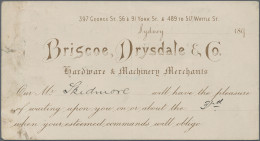 397 George St, 56 & 91 York St. & 489 to 517 Wattle St
Sydney 189
Briscoe, Drysdale & Co.
Hardware & Machinery Merchants
Our Mr. Skidmore will have the pleasure
of waiting upon you on or about the 3rd
when your esteemed commands will oblige